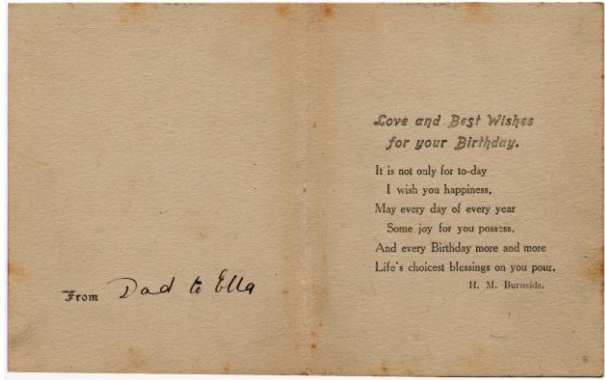 From Dad to Ella
Love and Best Wishes
for your Birthday.
It is not only for to-day
I wish you happiness,
May every day of every year
Some joy for you possess,
And every Birthday more and more
Life's choicest blessings on you pour.
H. M. Burnside.